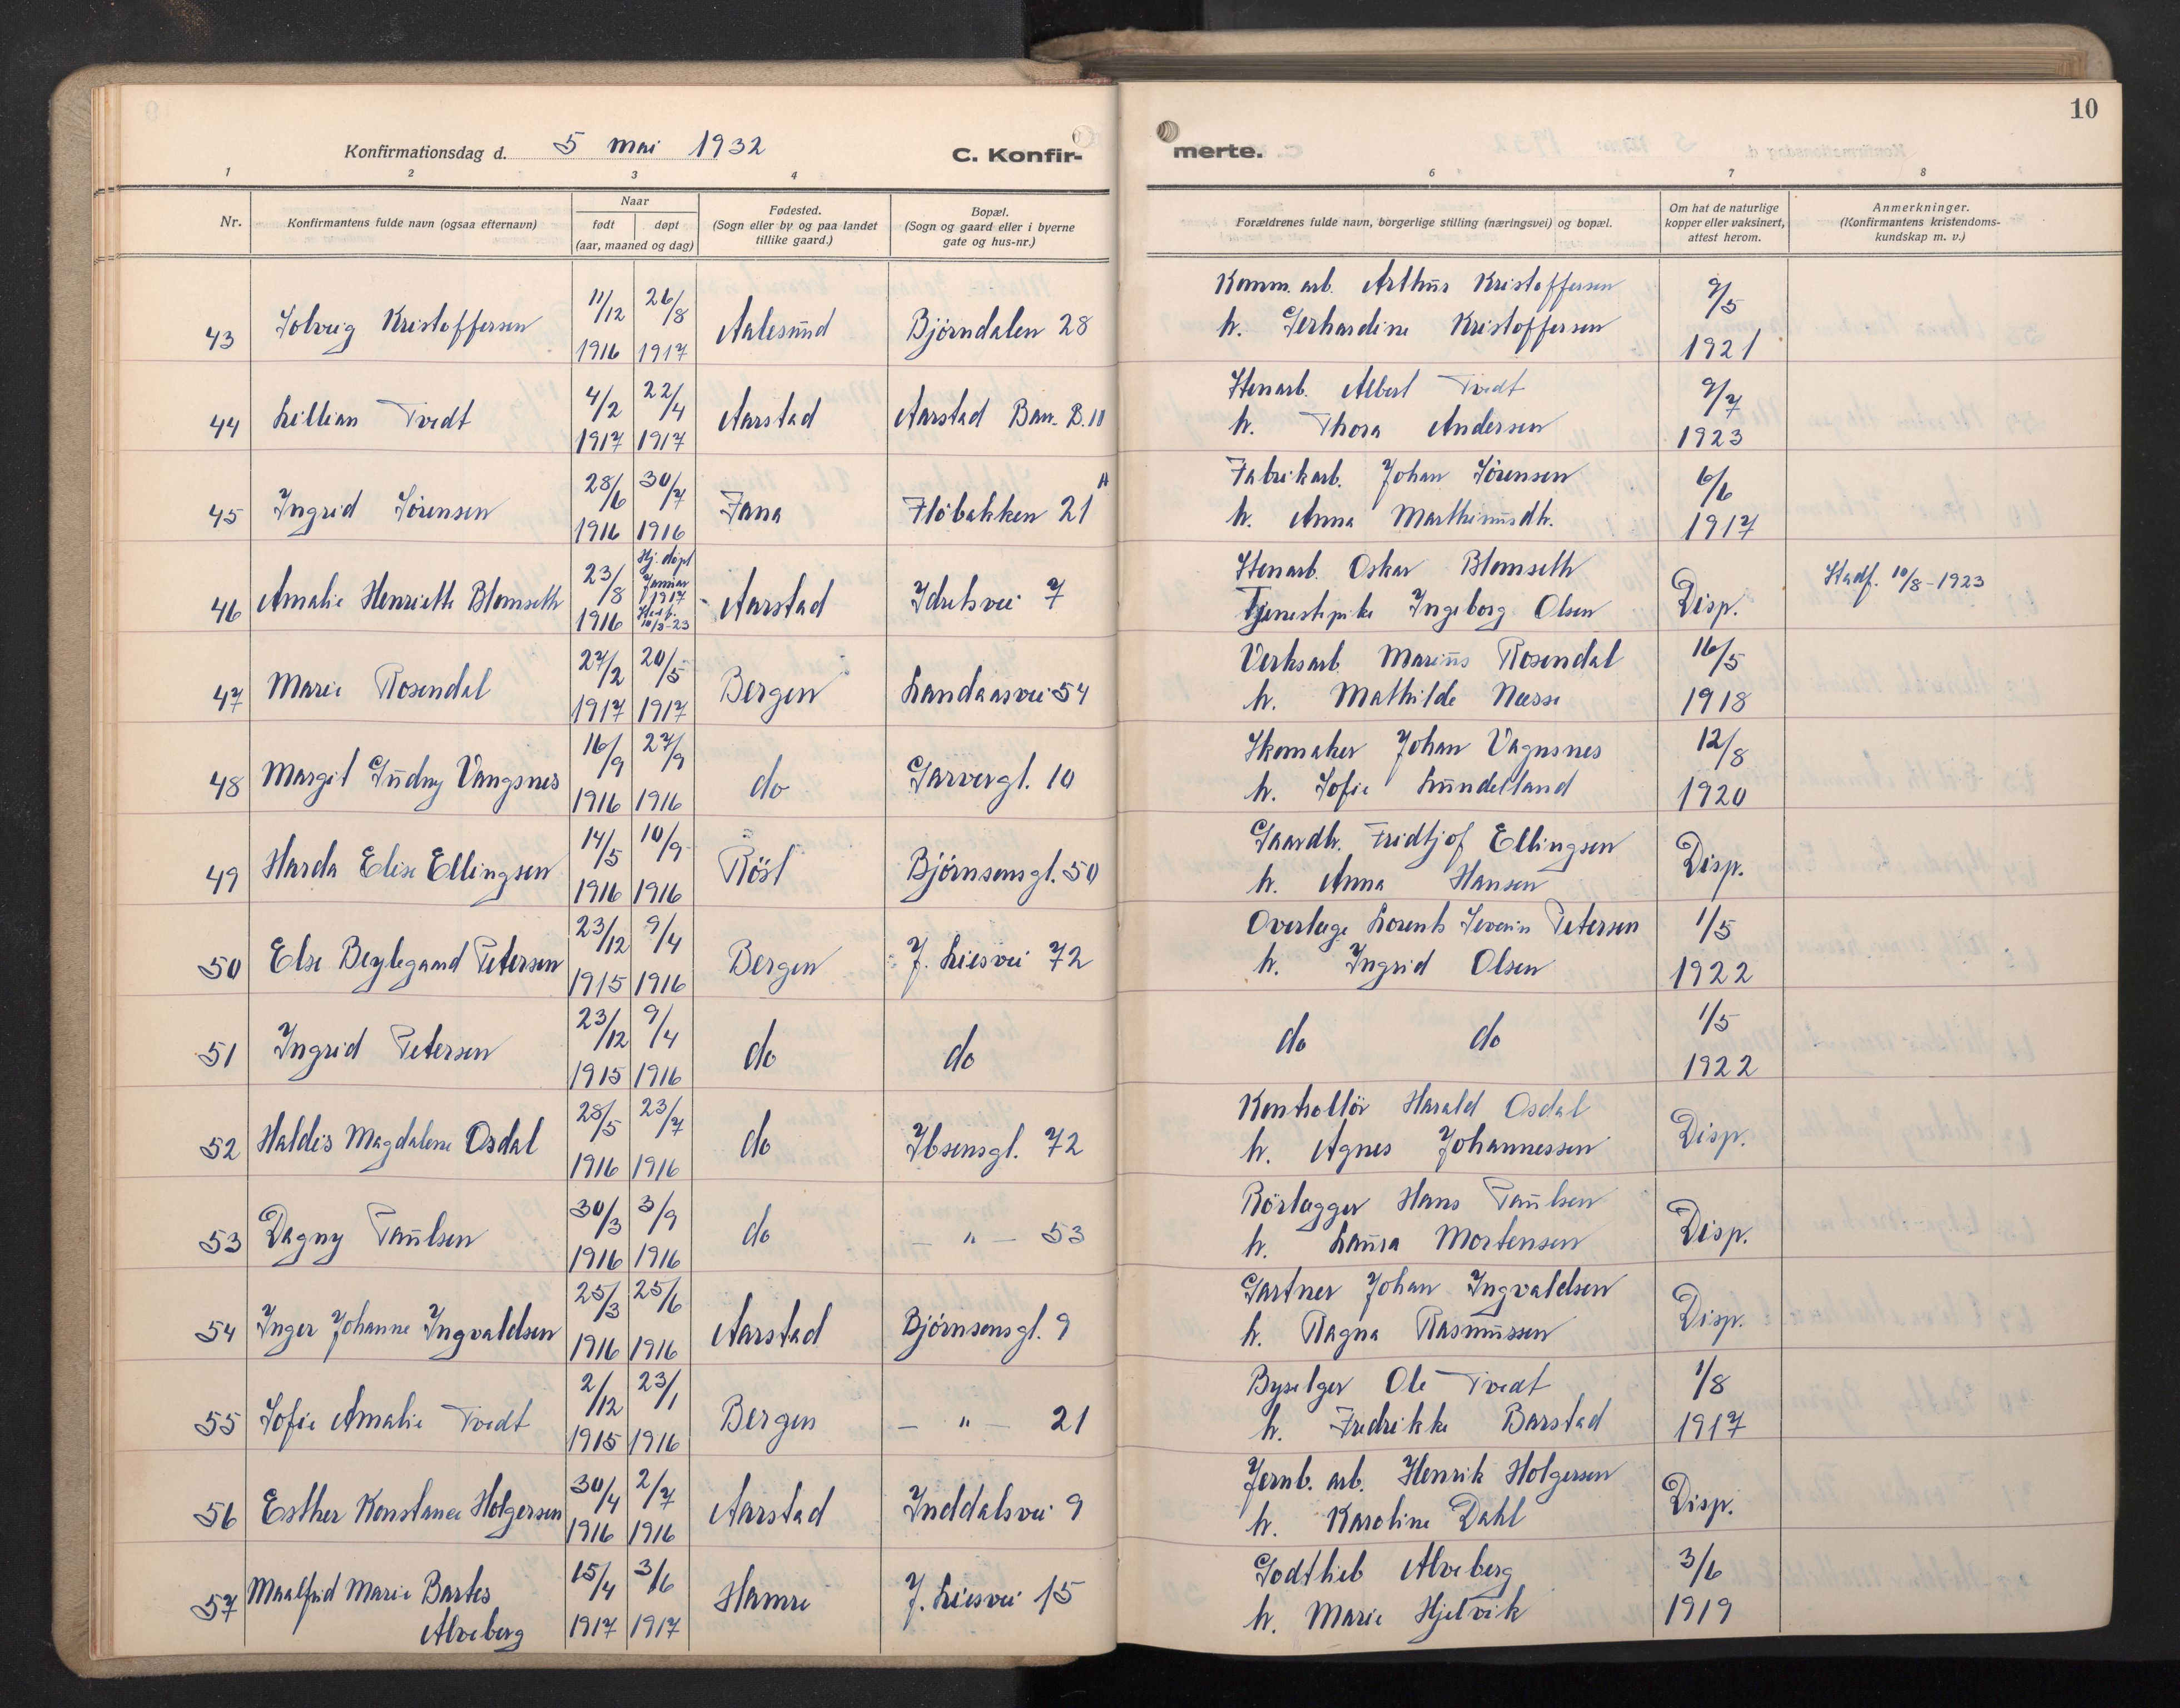 Konfirmationsdag d. 5 mai 1932
C. Konfir-
merte.
10
1 2 3 4 6 7 8
Nr.
Konfirmantens fulde navn (ogsaa efternavn)
Naar
født døpt
(aar, maaned og dag)
Fødested.
(Sogn eller by og paa landet
tillike gaard.)
Bopæl.
(Sogn og gaard eller i byerne
gate og hus-nr.)
Forældrenes fulde navn, borgerlige stilling (næringsvei) og bopæl.
Om hat de naturlige
kopper eller vaksinert,
attest herom.
Anmerkninger.
(Konfirmantens kristendoms-
kundskap m. v.)
43 Solveig Kristoffersen 11/12 1916 26/8 1917 Aalesund Bjørndalen 28
Komm. arb. Arthur Kristoffersen
h. Gerhardine Kristoffersen
9/5 1921
44 Lillian Tvedt 4/2 1917 22/4 1917 Aarstad Aarstad Bar. B. 10
Stenarb. Albert Tvedt
h. Thora Andersen
9/7 1923
45 Ingrid Sørensen 28/6 1916 30/7 1916 Fana Fløbakken 21 A
Fabrikarb. Johan Sørensen
h. Anna Marthinusdtr.
6/6 1917
46 Amalie Henriette Blomseth 23/8 1916 Hj. døpt Januar 1917 10/8-23 Aarstad Idretsvei 7
Stenarb. Oskar Blomseth
Tjenestepike Ingeborg Olsen
Disp.
Stadf. 10/8-1923
47 Marie Rosendal 27/2 1917 20/5 1917 Bergen Landaasvei 54
Verksarb. Marius Rosendal
h. Mathilde Næsse
16/5 1918
48 Margit Gudny Vangsnes 16/9 1916 27/9 1916 do Garvergt. 10
Skomaker Johan Vagnsnes
h. Sofie Lundetland
12/8 1920
49 Harda Elise Ellingsen 14/5 1916 10/9 1916 Röst Bjørnsonsgt. 50
Gaardbr. Fridtjof Ellingsen
h. Anna Hansen
Disp.
50 Else Beylegaard Petersen 23/12 1915 9/4 1916 Bergen J. Liesvei 72
Overlæge Lorents Severin Petersen
h. Ingrid Olsen
1/5 1922
51 Ingrid Petersen 23/12 1915 9/4 1916 do do
do do
1/5 1922
52 Haldis Magdalene Osdal 28/5 1916 23/7 1916 do Ibsensgt. 72
Kontrollör Harald Osdal
h. Agnes Johannessen
Disp.
53 Dagny Paulsen 30/3 1916 3/9 1916 do — " — 53
Rörlegger Hans Paulsen
h. Laura Mortensen
Disp.
54 Inger Johanne Ingvaldsen 25/3 1916 25/6 1916 Aarstad Bjørnsonsgt. 9
Gartner Johan Ingvaldsen
h. Ragna Rasmussen
Disp.
55 Sofie Amalie Tvedt 2/12 1915 23/1 1916 Bergen — " — 21
Byselger Ole Tvedt
h. Fredrikke Barstad
1/8 1917
56 Esther Konstance Holgersen 30/4 1916 2/7 1916 Aarstad Inddalsvei 9
Jernb. arb. Henrik Holgersen
h. Karoline Dahl
Disp.
57 Maalfrid Marie Bartes
Alveberg
15/4 1917 3/6 1917 Hamre J. Liesvei 15
Godtlieb Alveberg
h. Marie Hjelvik
3/6 1919